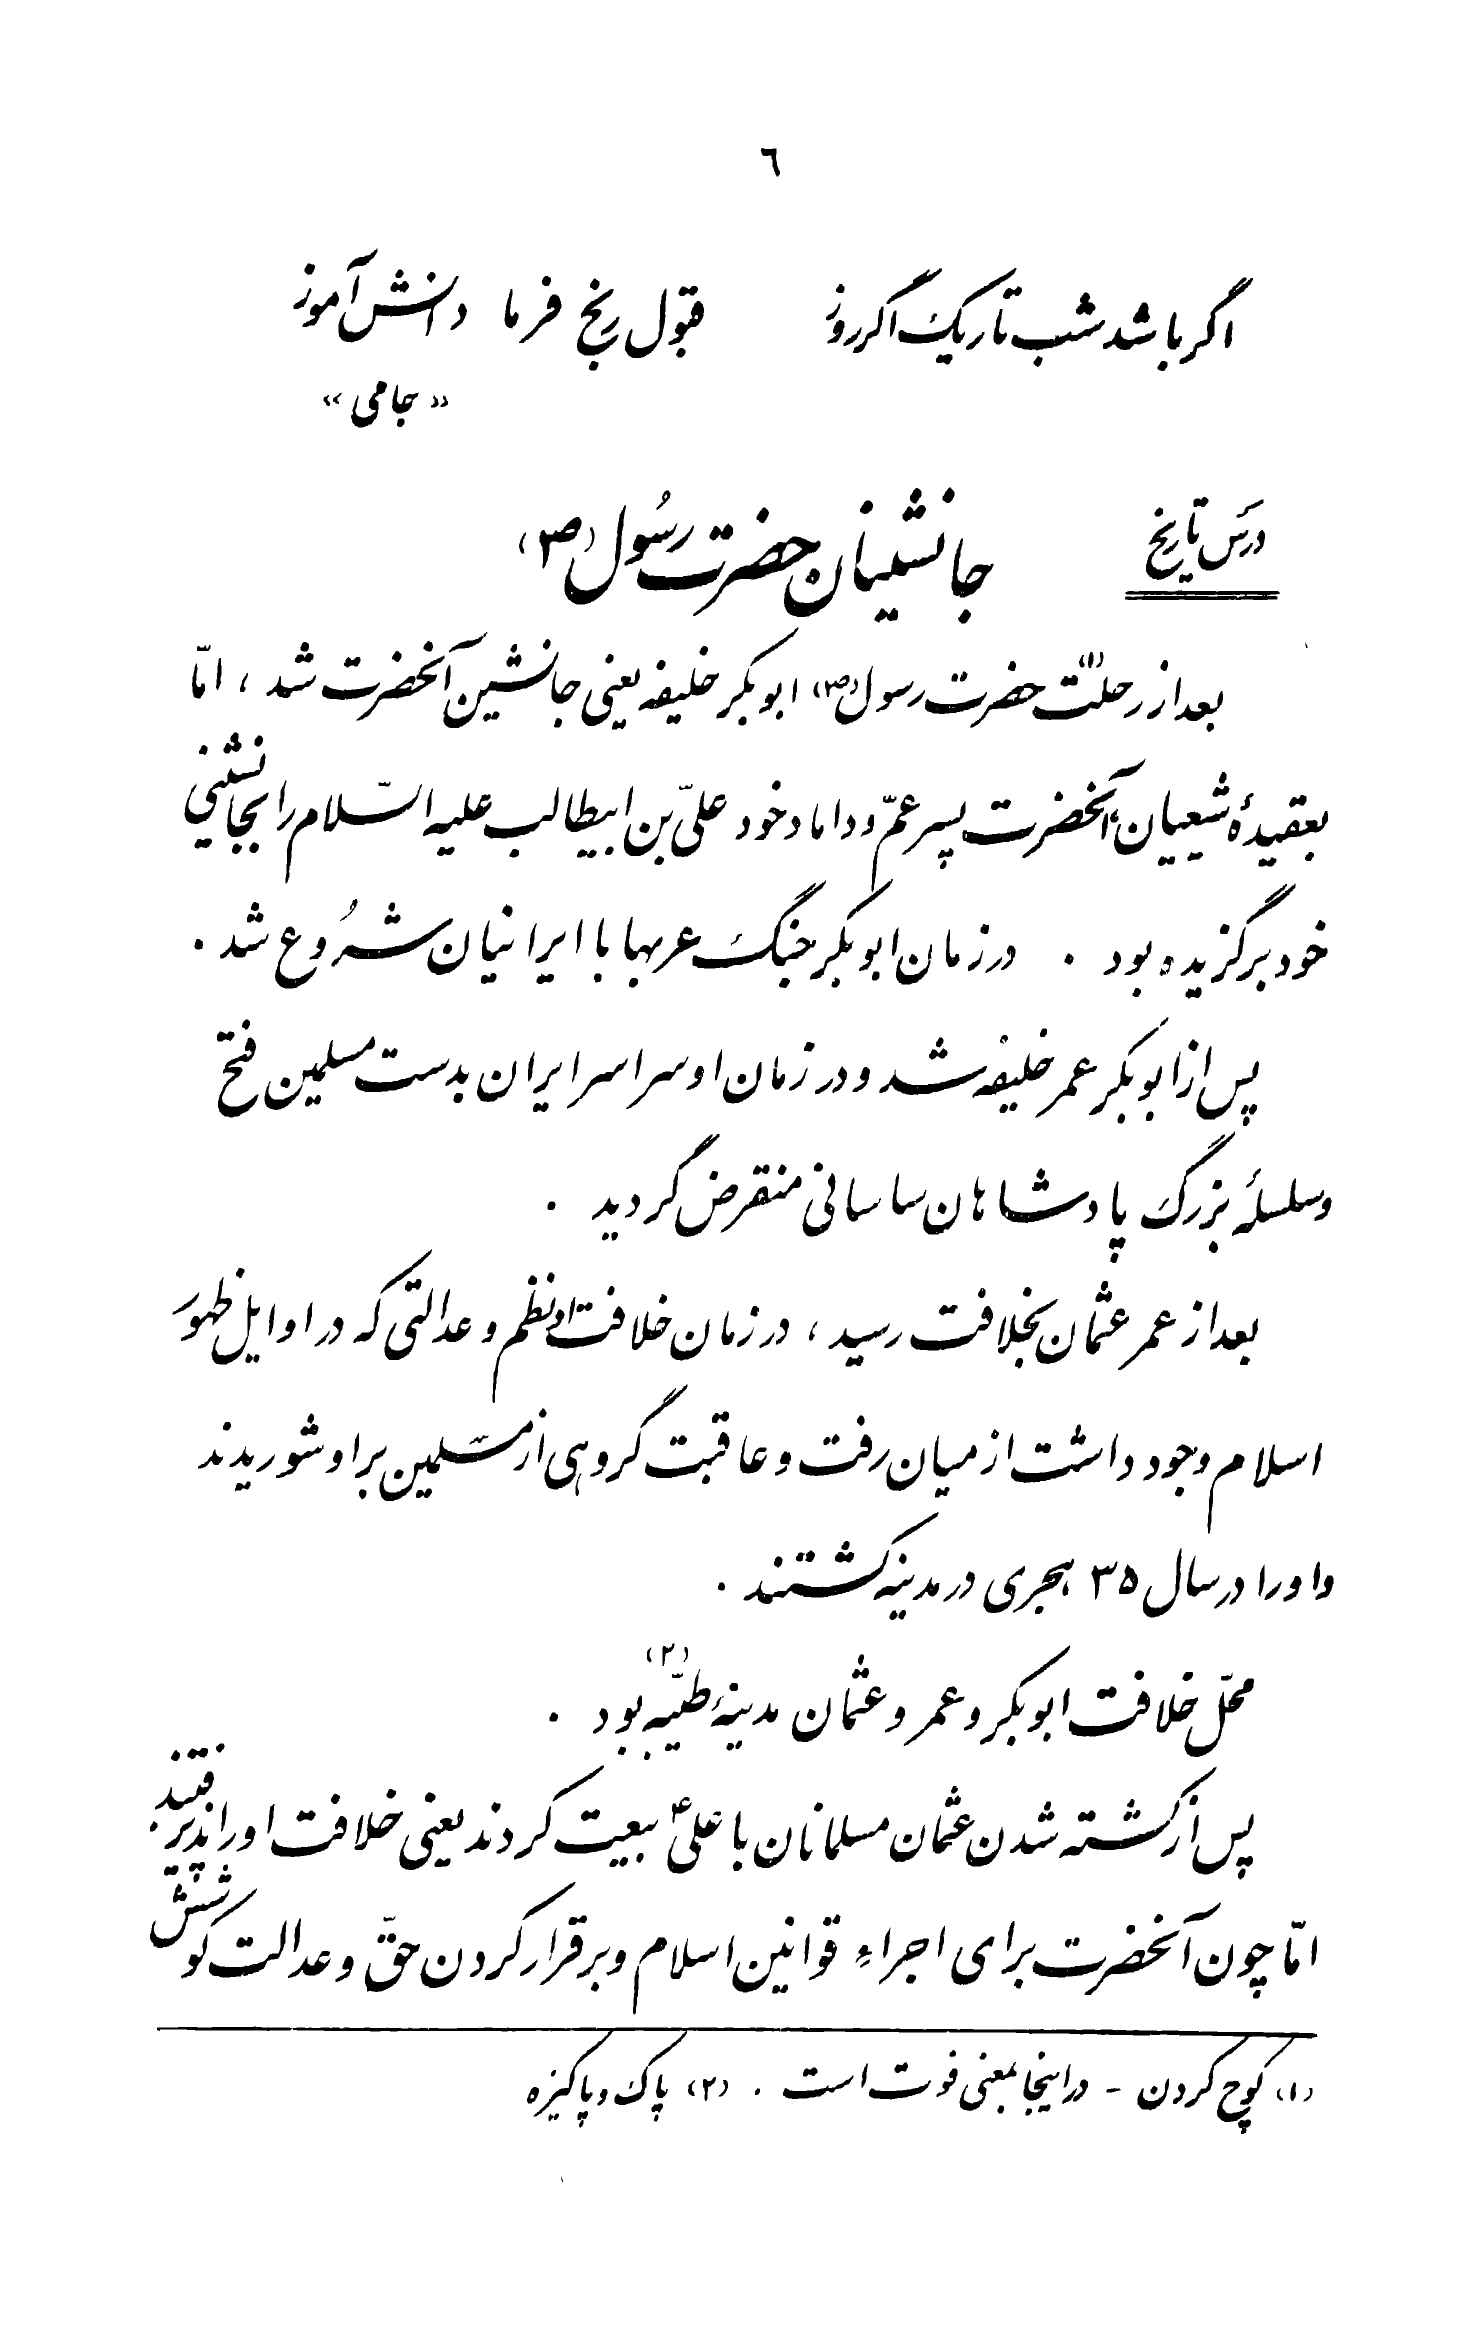 ٦
اگر باشد شب تاریک اگر روز    قبول رنج فرما دانش آموز
«جامی»
درس تاریخ    جانشینان حضرت رسُول (ص)
بعد از رحلت(۱) حضرت رسول (ص) ابوبکر خلیفه یعنی جانشین آنحضرت شد ، امّا
بعقیدهٔ شیعیان آنحضرت پسر عمّ و داماد خود علیّ بن ابیطالب علیه السّلام را بجانشینی
خود برگزیده بود . در زمان ابوبکر جنگ عربها با ایرانیان شرُوع شد .
پس از ابوبکر عمر خلیفه شد و در زمان او سراسر ایران بدست مسلمین فتح
و سلسلهٔ بزرگ پادشاهان ساسانی منقرض گردید .
بعد از عمر عثمان بخلافت رسید ، در زمان خلافت او نظم و عدالتی که در اوایل ظهور
اسلام وجود داشت از میان رفت و عاقبت گروهی از مسلمین بر او شوریدند
و او را در سال ۳۵ هجری در مدینه کشتند .
محلّ خلافت ابوبکر و عمر و عثمان مدینهٔ طیّبه(۲) بود .
پس از کشته شدن عثمان مسلمانان با علی ع بیعت کردند یعنی خلافت او را پذیرفتند .
امّا چون آنحضرت برای اجراء قوانین اسلام و برقرار کردن حقّ و عدالت کوشش
(۱) کوچ کردن - در اینجا بمعنی فوت است . (۲) پاک و پاکیزه